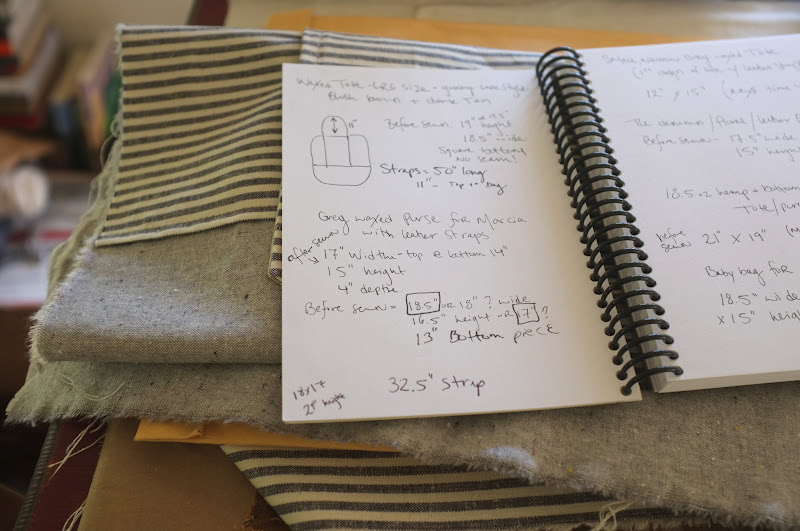 Waxed Tote - LRG size - 
Blush brown + dark Tan
11"
Before sewn: 19" height
18.5" wide
Square bottom
NO SEAM!
Straps = 50" long
11" - Top to bag
Grey waxed Purse for Marcia
with leater Straps
after sewn 17" Width - top @ bottom 14"
15" height
4" depth
Before sewn = 18.5" or 18" ? wide
16.5" height - OR 17" ?
13" Bottom piece
32.5" Strap
18x17
21" height
12" x 15" (next time
The
Before sewn - 17.5" wide
15" height
18.5 oz hemp + bottom
Tote/
before sewn 21" x 19"
Baby bag for
18.5" wide
x 15" heigh